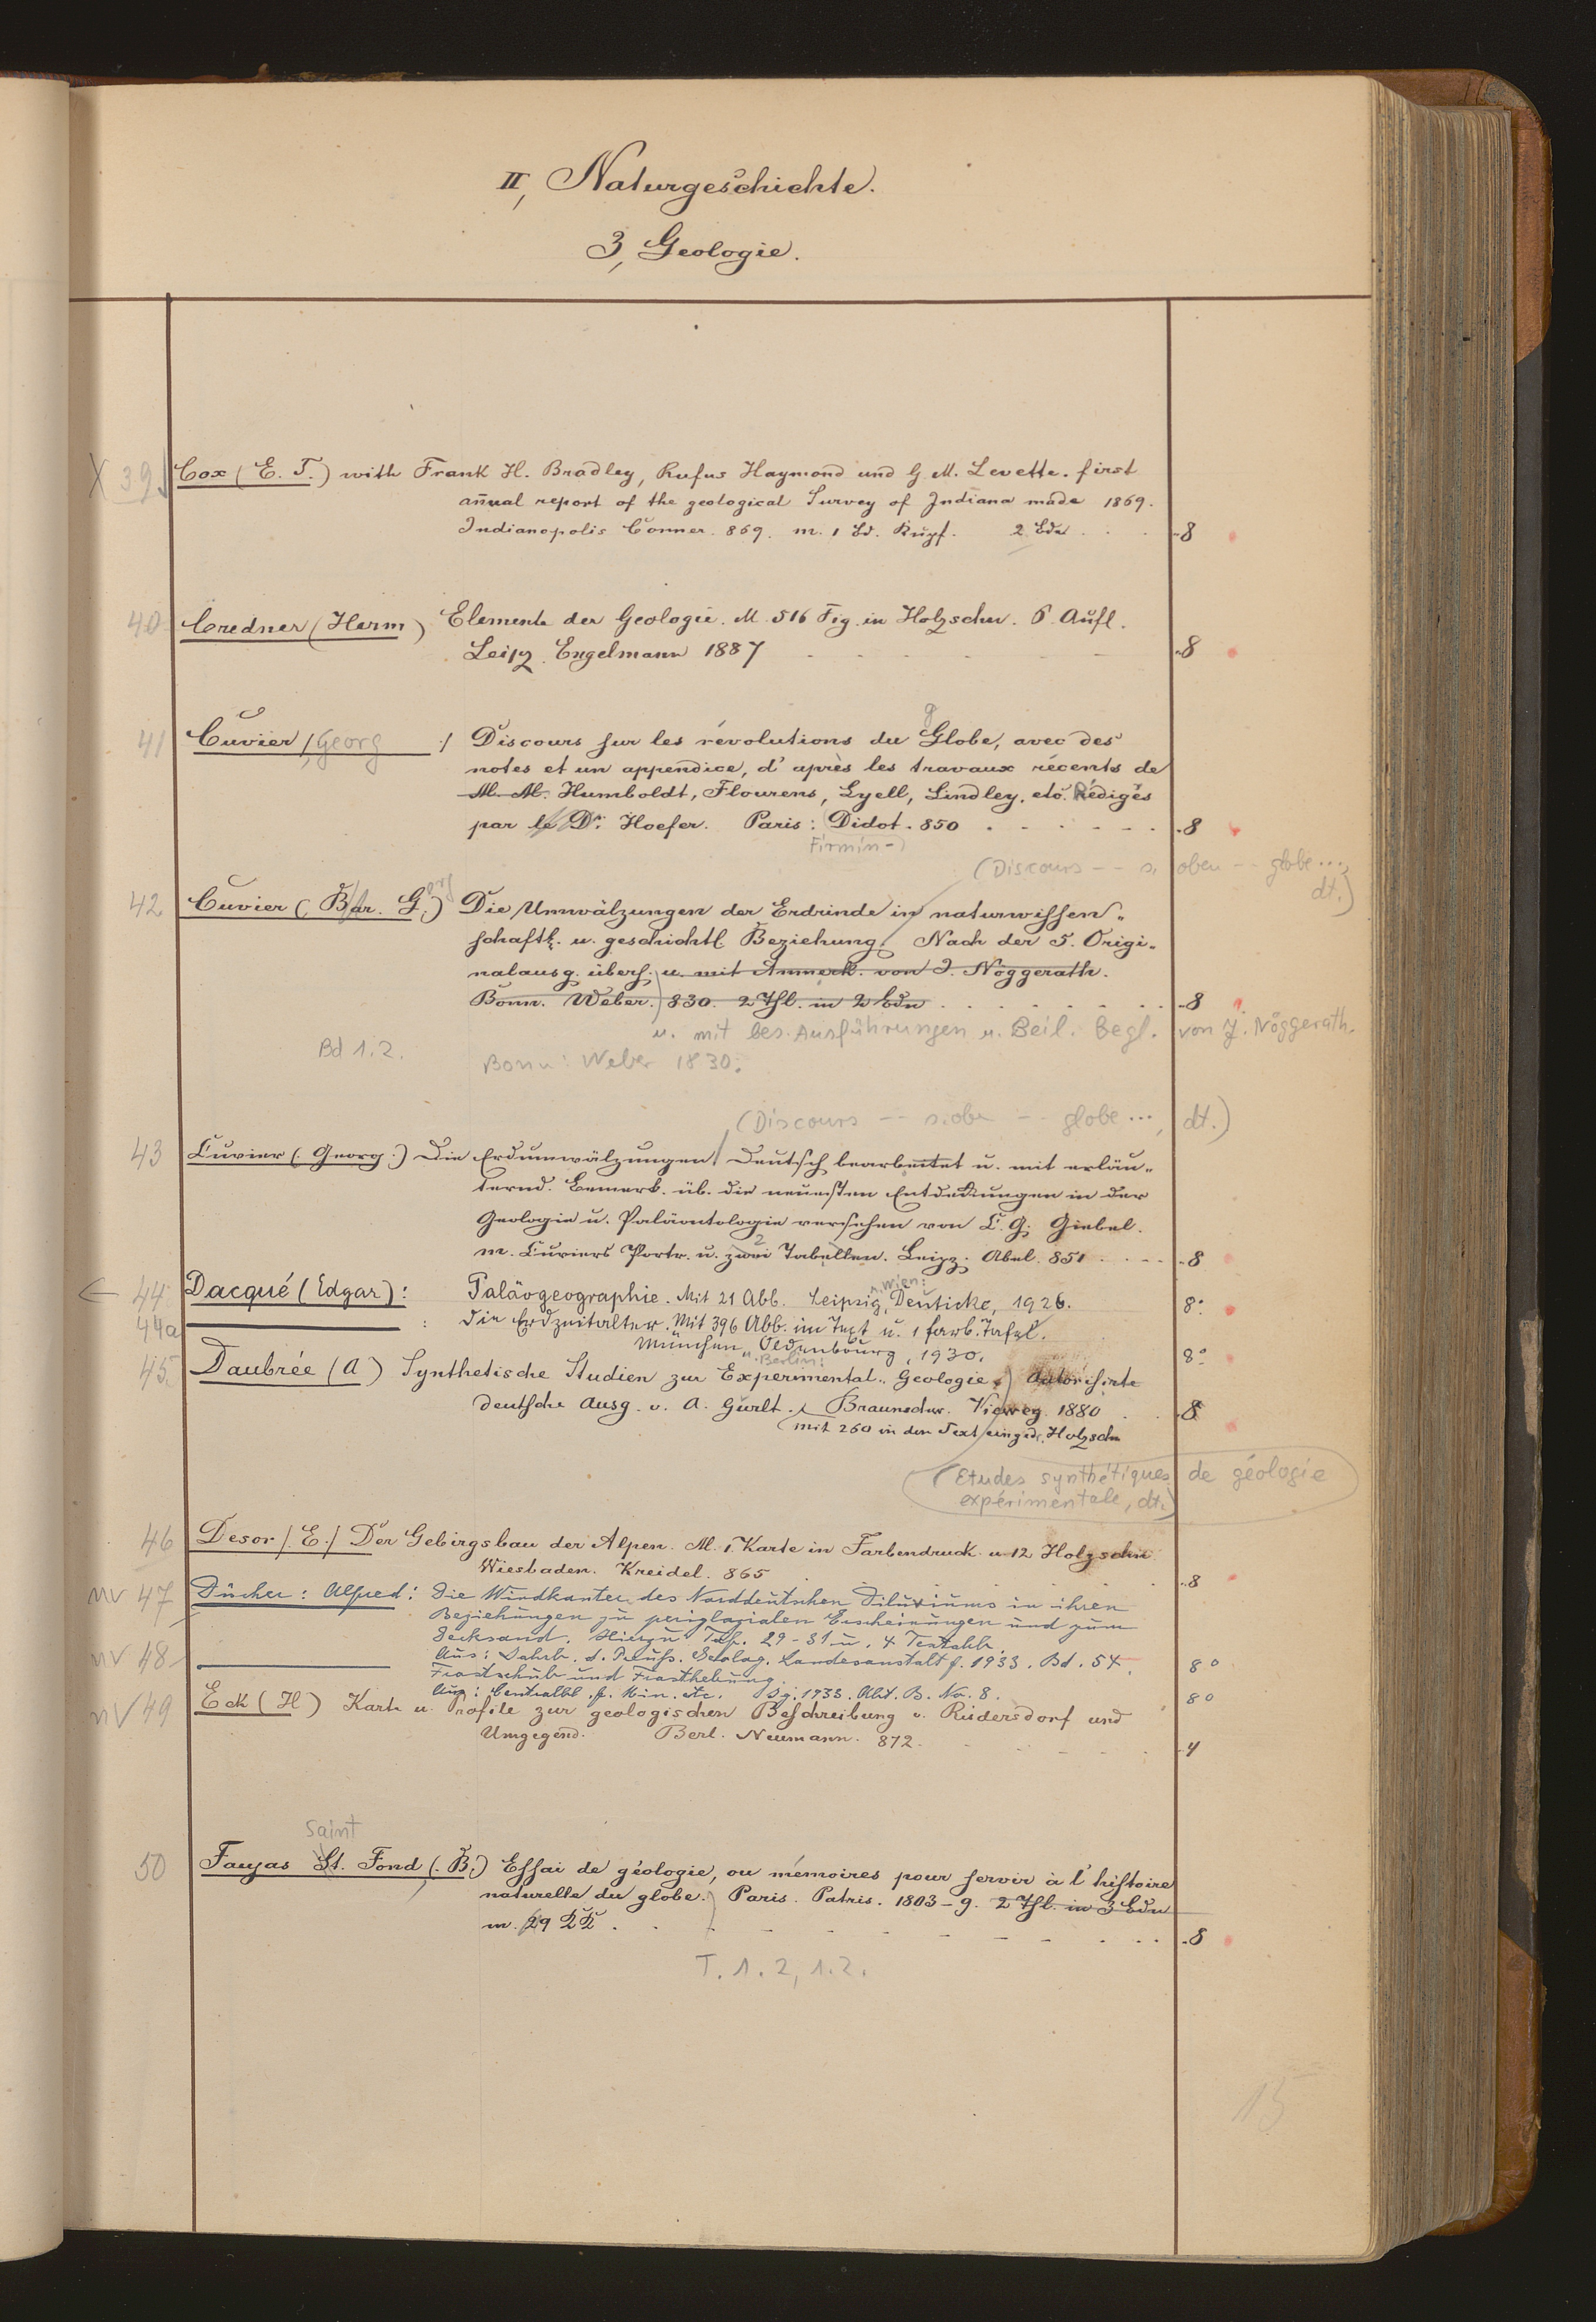 II, Naturgeschichte.
3, Geologie.
X 39 Cox (E. T.) with Frank H. Bradley, Rufus Haymond und G. M. Levette. first
añual report of the geological Survey of Indiana made 1869.
Indianopolis Conner. 869. m. 1 Bd. Kupf. 2 Bde . . . 8
40 Credner (Herm) Elemente der Geologie. M. 516 Fig. in Holzschn. 6. Aufl.
Leipz. Engelmann 1887 - - - - - - 8
g
41 Cuvier /, Georg :/ Discours sur les révolutions du Globe, avec des
notes et un appendice, d'après les travaux récents de
M. M. Humboldt, Flourens, Lyell, Lindley, etc. Rédigés
par le Dr. Hoefer. Paris: Didot. 850 . - - - - . 8
Firmin-)
(Discours -- s. oben -- globe ...,
dt.)
org
42 Cuvier (, Bar. G.) Die Umwälzungen der Erdrinde in naturwissen„
schaftl. u. geschichtl. Beziehung. Nach der 5. Origi„
nalausg. übers. u. mit Anmerk. von J. Nöggerath.
Bonn. Weber. 830. 2 Thl. in 2 Bdn . . . . . 8
u. mit bes. Ausführungen u. Beil. begl. von J. Nöggerath.
Bd 1.2. Bonn: Weber 1830.
(Discours -- s. oben -- globe ..., dt.)
43 Cuvier (. Georg :) Die Erdumwälzungen Deutsch bearbeitet u. mit erläu„
ternd. Bemerk. üb. die neuesten Entdeckungen in der
Geologie u. Paläontologie versehen von C. G. Giebel.
2
m. Cuviers Portr. u. zwei Tabellen. Leipz. Abel. 851 . . - - 8
Wien:
← 44 Dacqué (Edgar): Paläogeographie. Mit 21 Abb. Leipzig, Deuticke, 1926. 8°
44a : Die Erdzeitalter. Mit 396 Abb. im Text u. 1 farb. Tafel.
München, Oldenbourg, 1930. 8°
u. Berlin:
45. Daubrée (A) Synthetische Studien zur Experimental„ Geologie. Autorisirte
deutsche Ausg. v. A. Gurlt. Braunschw. Vieweg. 1880 . . 8
mit 260 in den Text eingedr. Holzschn
(Etudes synthétiques de géologie
expérimentale, dt.)
46 Desor /. E./ Der Gebirgsbau der Alpen. M. 1. Karte in Farbendruck u. 12 Holzschn
Wiesbaden. Kreidel. 865 . . . . 8
nv 47 Dücker: Alfred: Die Windkanter des Norddeutschen Diluviums in ihren
Beziehungen zu periglazialen Erscheinungen und zum
Decksand. Hierzu Taf. 29-31 u. 4 Textabb.
Aus: Jahrb. d. Preuss. Geolog. Landesanstalt f. 1933. Bd. 54. 8°
nv 48 Frostschub und Frosthebung.
Aus: Centralbl. f. Min. etc. Jg. 1933. Abt. B. No. 8. 8°
nv 49 Eck (H) Karte u. Profile zur geologischen Beschreibung v. Rüdersdorf und
Umgegend. Berl. Neumann. 872. - - - - 4
Saint
50 Faujas St. Fond (. B.) Essai de géologie, ou mémoires pour servir à l'histoire
naturelle du globe. Paris. Patris. 1803-9. 2 Thl. in 3 Bdn
m. 29 . - - - - - - . . . 8
T. 1. 2, 1. 2.
15